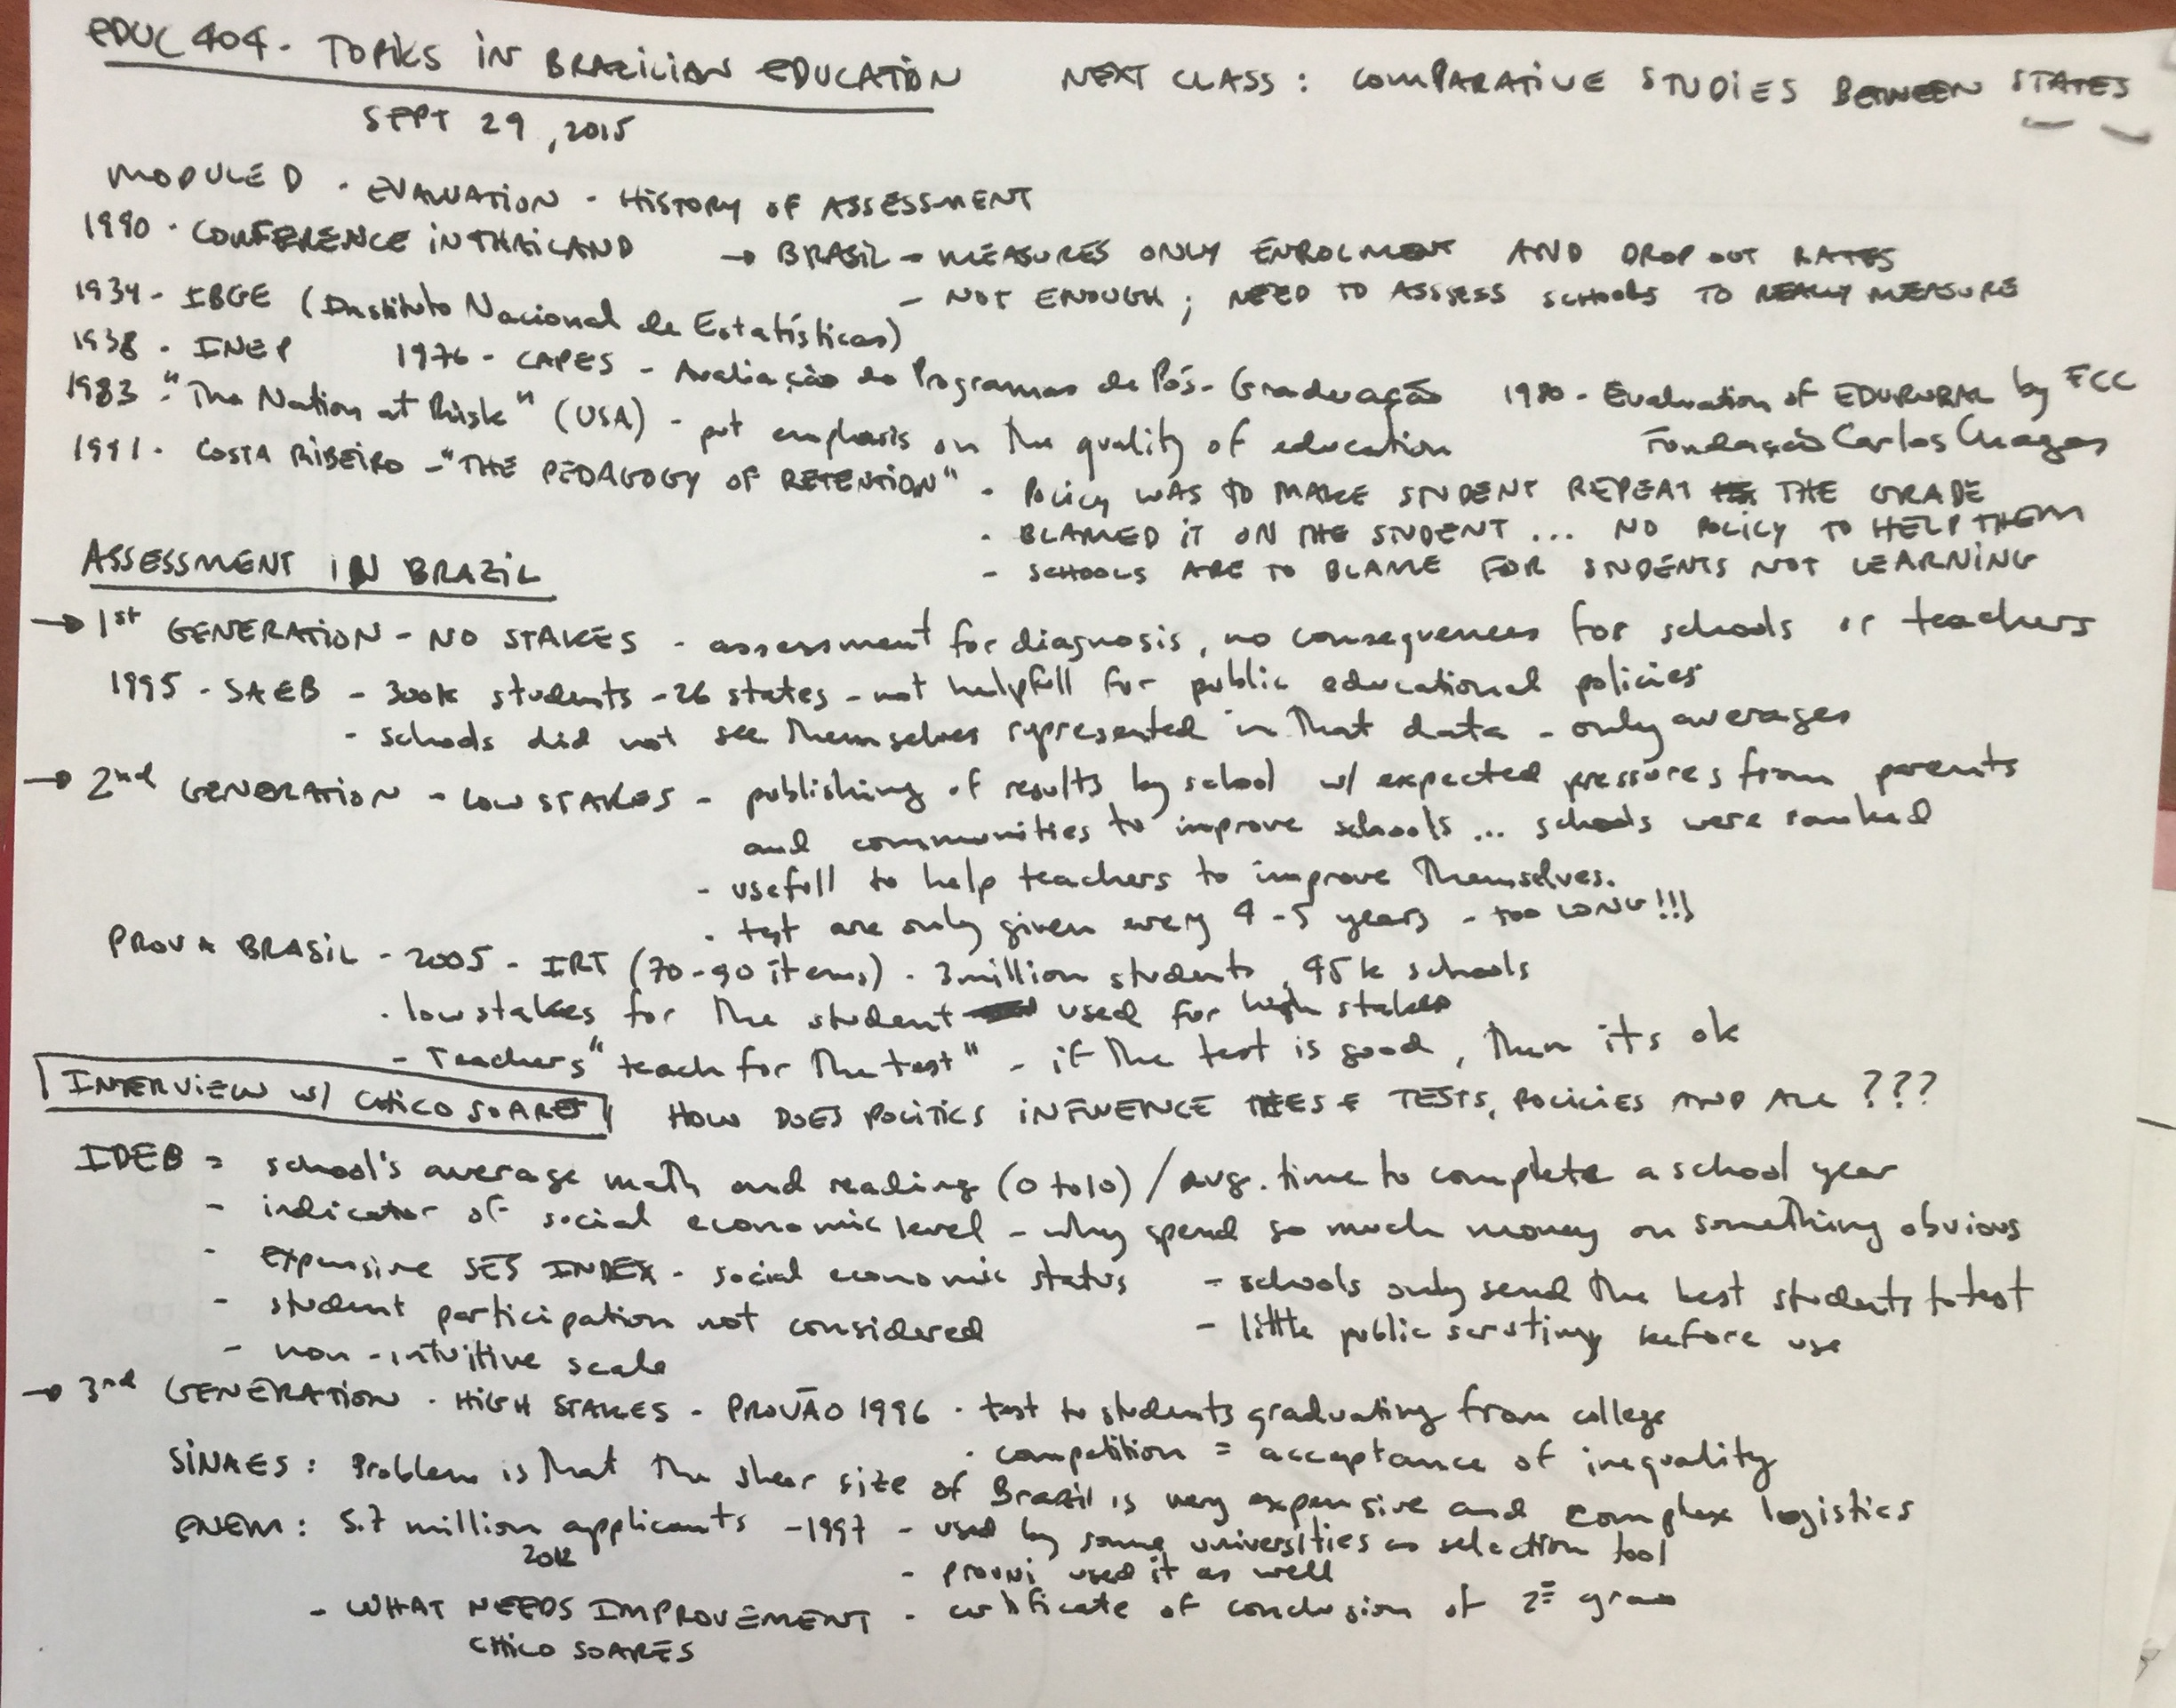 EDUC 404. TOPIKS IN BRAZILIAN EDUCATION
NEXT CLASS: COMPARATIVE STUDIES BETWEEN STATES
SEPT 29, 2015
MODULE D . EVALUATION - HISTORY OF ASSESSMENT
1990 . CONFERENCE IN THAILAND → BRASIL - MEASURES ONLY ENROLMENT AND DROP OUT RATES
- NOT ENOUGH; NEED TO ASSSESS SCHOOLS TO REALLY MEASURE
1934 - IBGE (Instituto Nacional de Estatísticas)
1938 . INEP 1976 - CAPES - Avaliação do Programas de Pós-Graduação 1980 - Evaluation of EDURURAL by FCC
Fundação Carlos Chagas
1983 - "The Nation at Risk" (USA) - put emphasis on the quality of education
1991 . COSTA RIBEIRO - "THE PEDAGOGY OF RETENTION" . POLICY WAS TO MAKE STUDENT REPEAT THE GRADE
. BLAMED IT ON THE STUDENT ... NO POLICY TO HELP THEM
- SCHOOLS ARE TO BLAME FOR STUDENTS NOT LEARNING
ASSESSMENT IN BRAZIL
→ 1st GENERATION - NO STAKES - assessment for diagnosis, no consequences for schools or teachers
1995 . SAEB - 300k students - 26 states - not helpfull for public educational policies
- schools did not see themselves represented in that data - only averages
→ 2nd GENERATION - LOW STAKES - publishing of results by school w/ expected pressures from parents
and communities to improve schools ... schools were ranked
- usefull to help teachers to improve themselves.
. test are only given every 4-5 years - too LONG!!!
PROVA BRASIL - 2005 - IRT (70-90 items) . 3 million students, 45k schools
. low stakes for the student used for high stakes
- Teachers "teach for the test" - if the test is good, then its ok
INTERVIEW w/ CHICO SOARES HOW DOES POLITICS INFLUENCE THESE TESTS, POLICIES AND ALL ???
IDEB = school's average math and reading (0 to 10) / avg. time to complete a school year
- indicator of social economic level - why spend so much money on something obvious
- expensive SES INDEX - social economic status
- schools only send the best students to test
- student participation not considered
- little public scrutiny before use
- non-intuitive scale
→ 3rd GENERATION . HIGH STAKES - PROVÃO 1996 . test to students graduating from college
. competition = acceptance of inequality
SINAES: Problem is that the shear size of Brazil is very expensive and complex logistics
ENEM: 5.7 million applicants - 1997 - used by some universities as selection tool
2012
- PROUNI used it as well
- WHAT NEEDS IMPROVEMENT - certificate of conclusion of 2º grau
CHICO SOARES